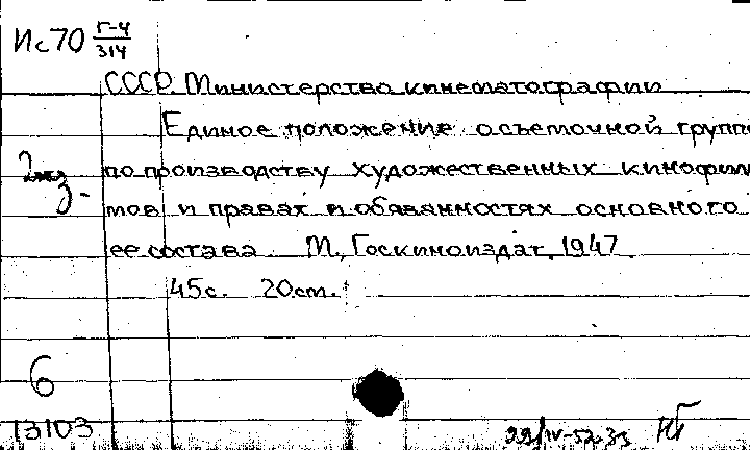 Ис70 Г-4/314
СССР. Министерство кинематографии
Единое положение о съемочной групп
по производству художественных кинофил
мов и правах и обязанностях основного
ее состава. М., Госкиноиздат, 1947.
45с. 20см.
2экз
3-
6
13103